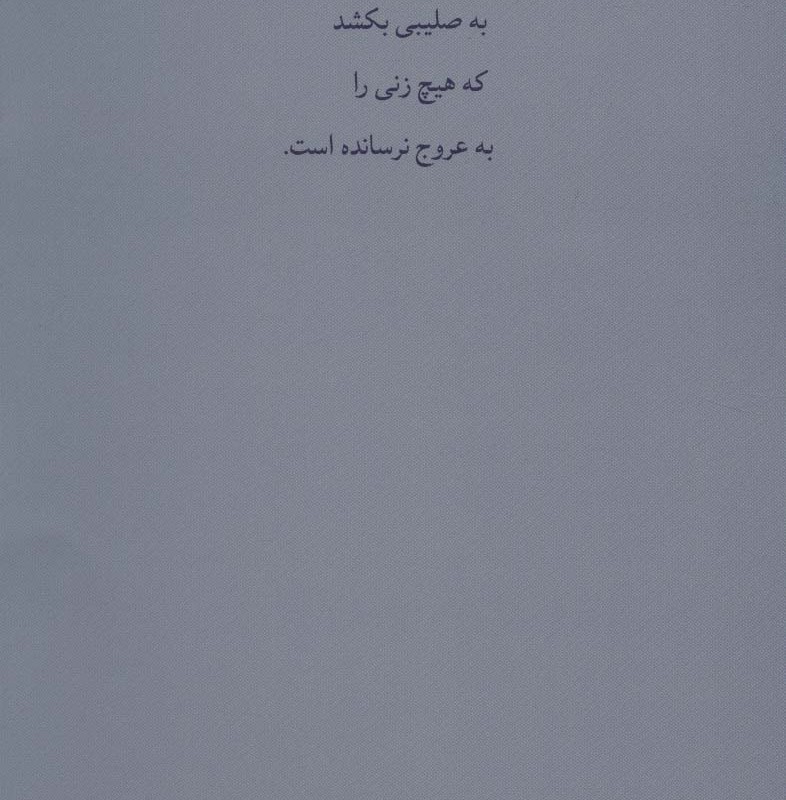 به صلیبی بکشد
که هیچ زنی را
به عروج نرسانده است.